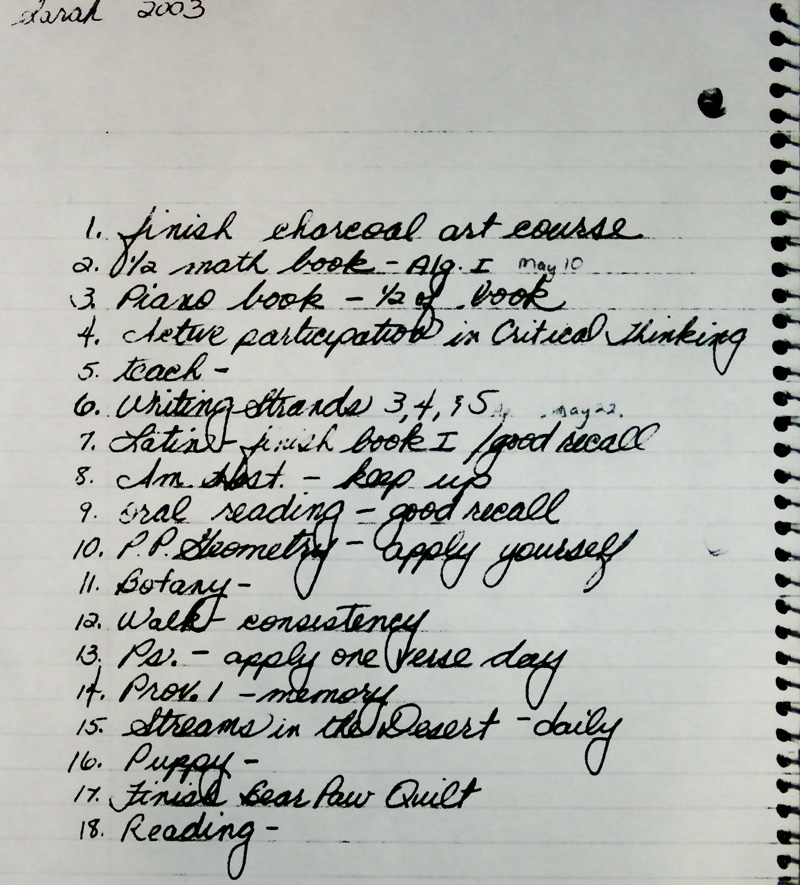 Sarah 2003
1. finish charcoal art course
2. 1/2 math book - Alg. I May 10
3. Piano book - 1/2 of book
4. Active participation in Critical Thinking
5. teach -
6. Writing Strands 3, 4, & 5 May 22.
7. Latin - finish book I / good recall
8. Am. Hist. - keep up
9. oral reading - good recall
10. P.P. Geometry - apply yourself
11. Botany -
12. Walk - consistency
13. Ps. - apply one verse day
14. Prov. 1 - memory
15. Streams in the Desert - daily
16. Puppy -
17. Finish Bear Paw Quilt
18. Reading -